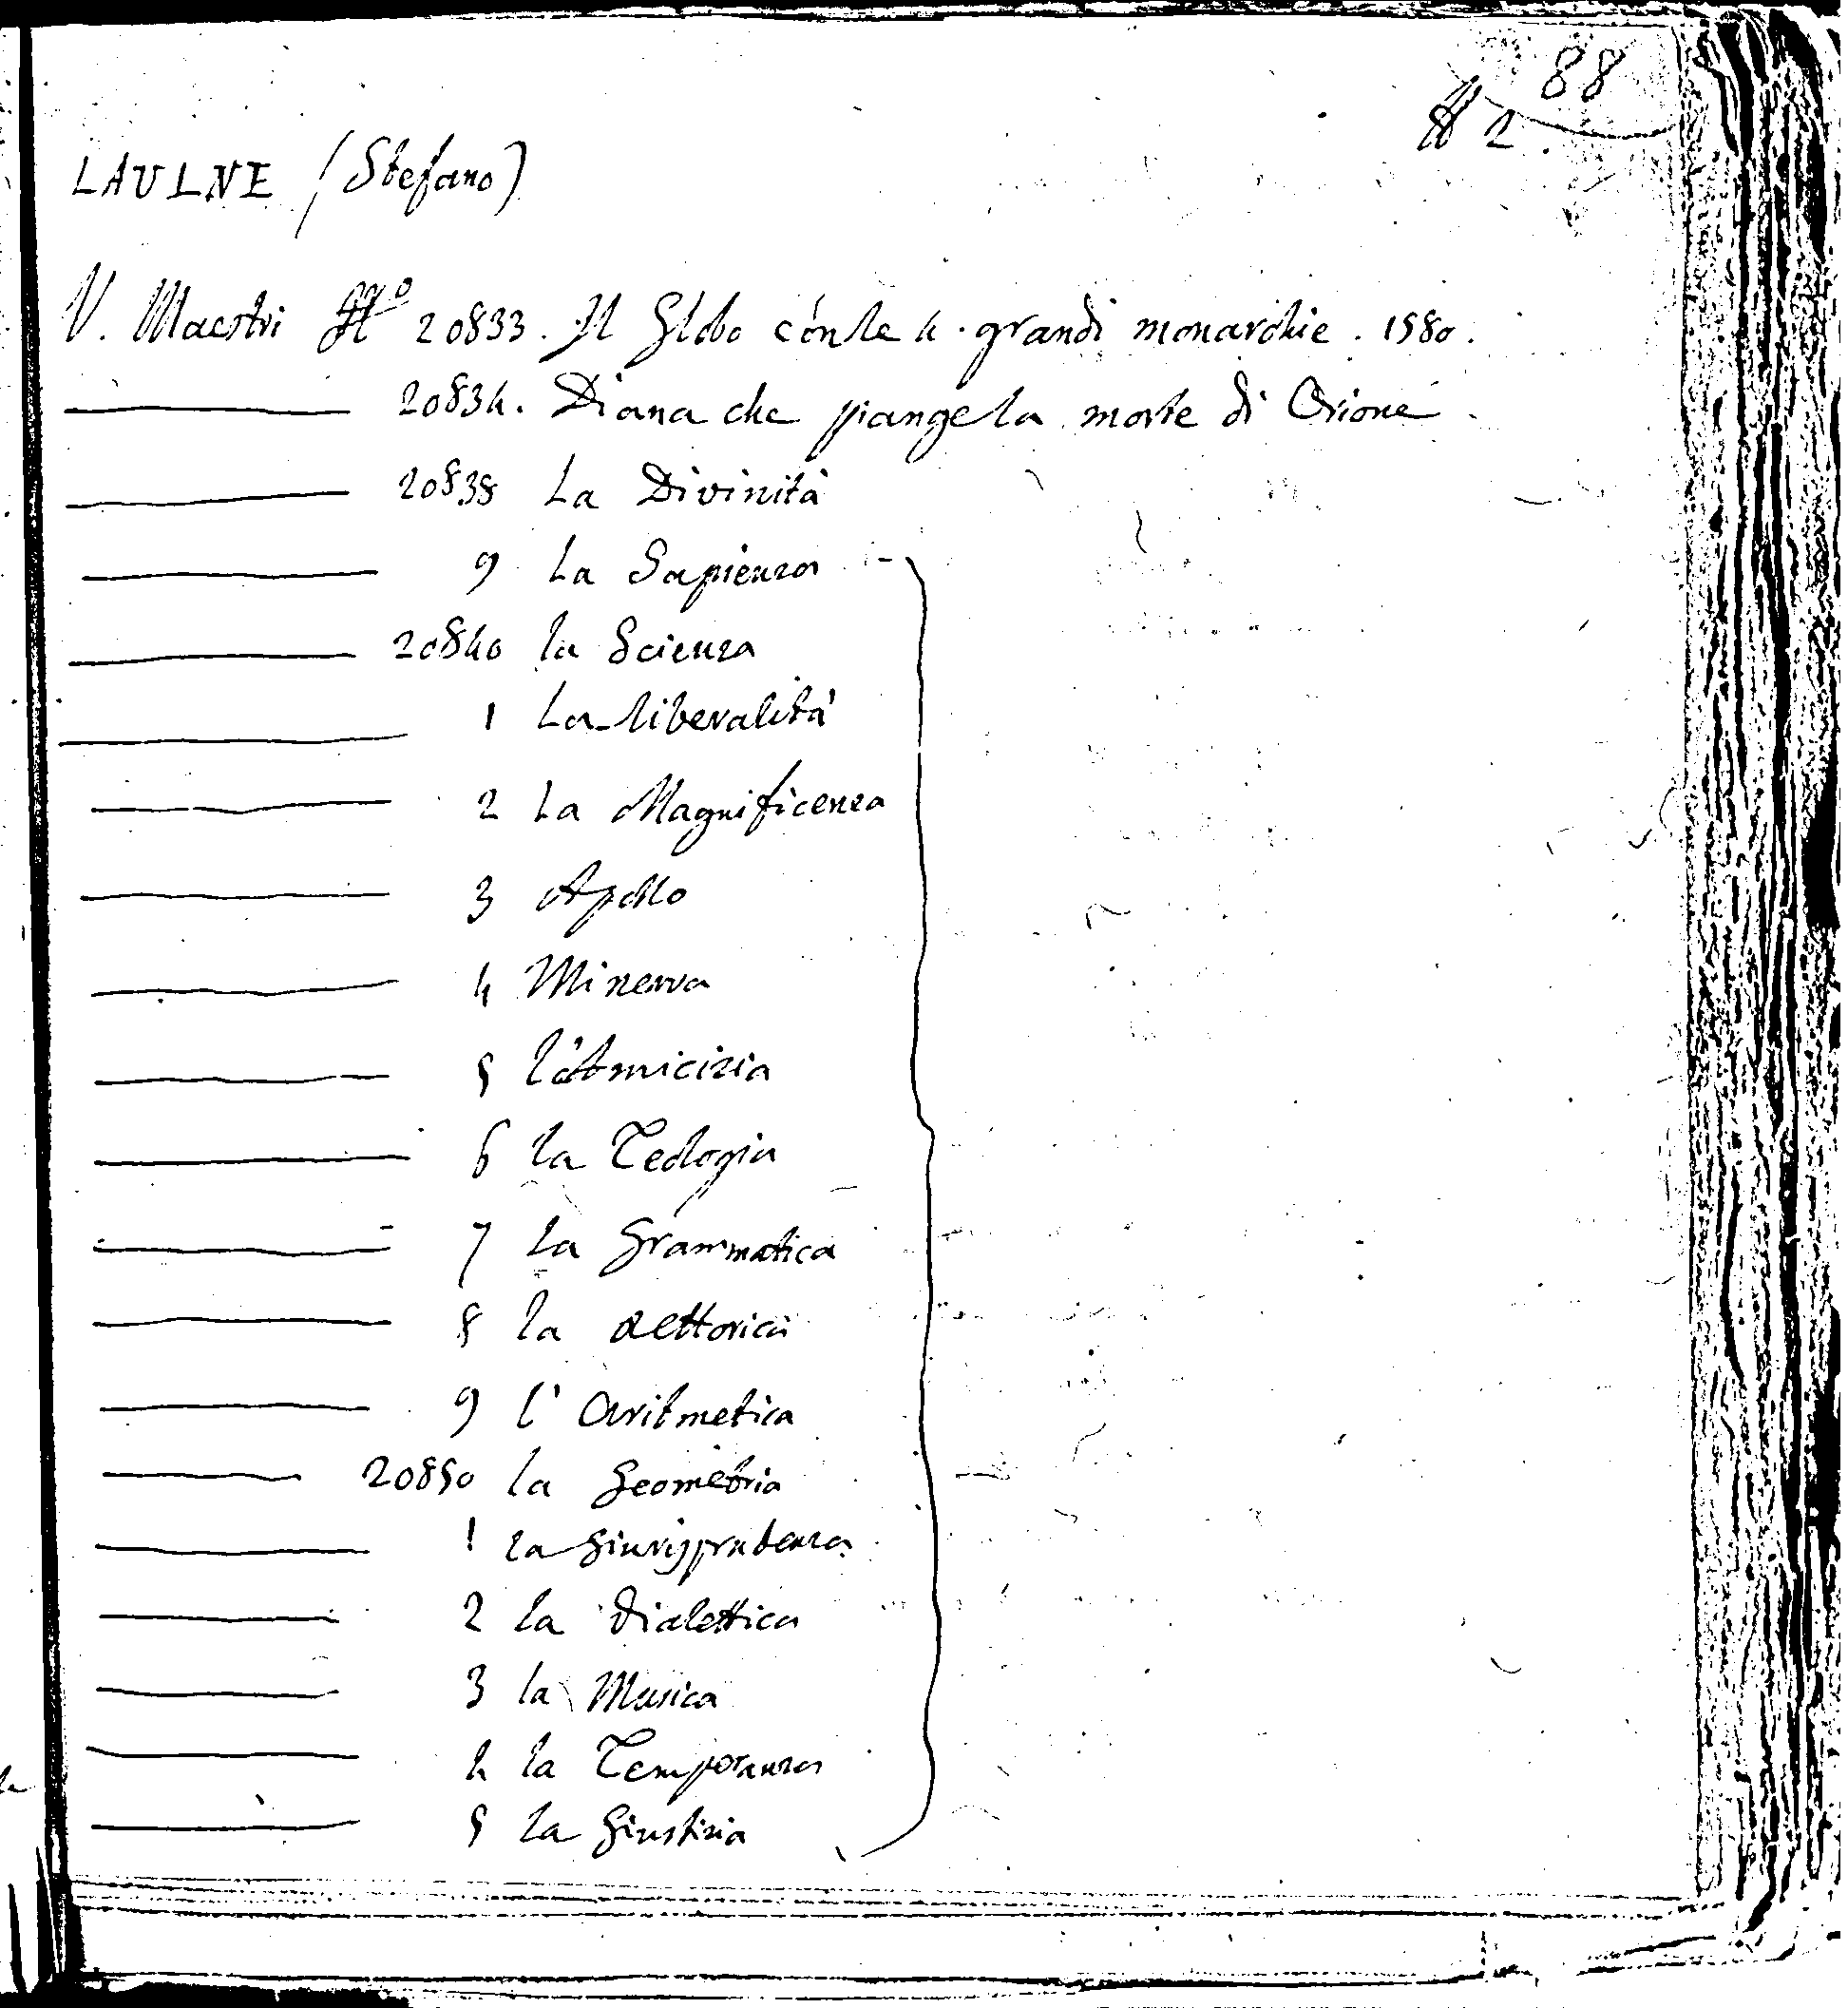 88
№ 2.
LAULNE (Stefano)
V. Maestri № 20833. Il Globo con le 4. grandi monarchie. 1580.
20834. Diana che piange la morte di Orione.
20838 La Divinità
9 La Sapienza
20840 la Scienza
1 La liberalità
2 La Magnificenza
3 Apollo
4 Minerva
5 l'Amicizia
6 la Teologia
7 la Grammatica
8 la Rettorica
9 l'Aritmetica
20850 la Geometria
1 la Giurisprudenza
2 la Dialettica
3 la Musica
4 la Temperanza
5 la Giustizia